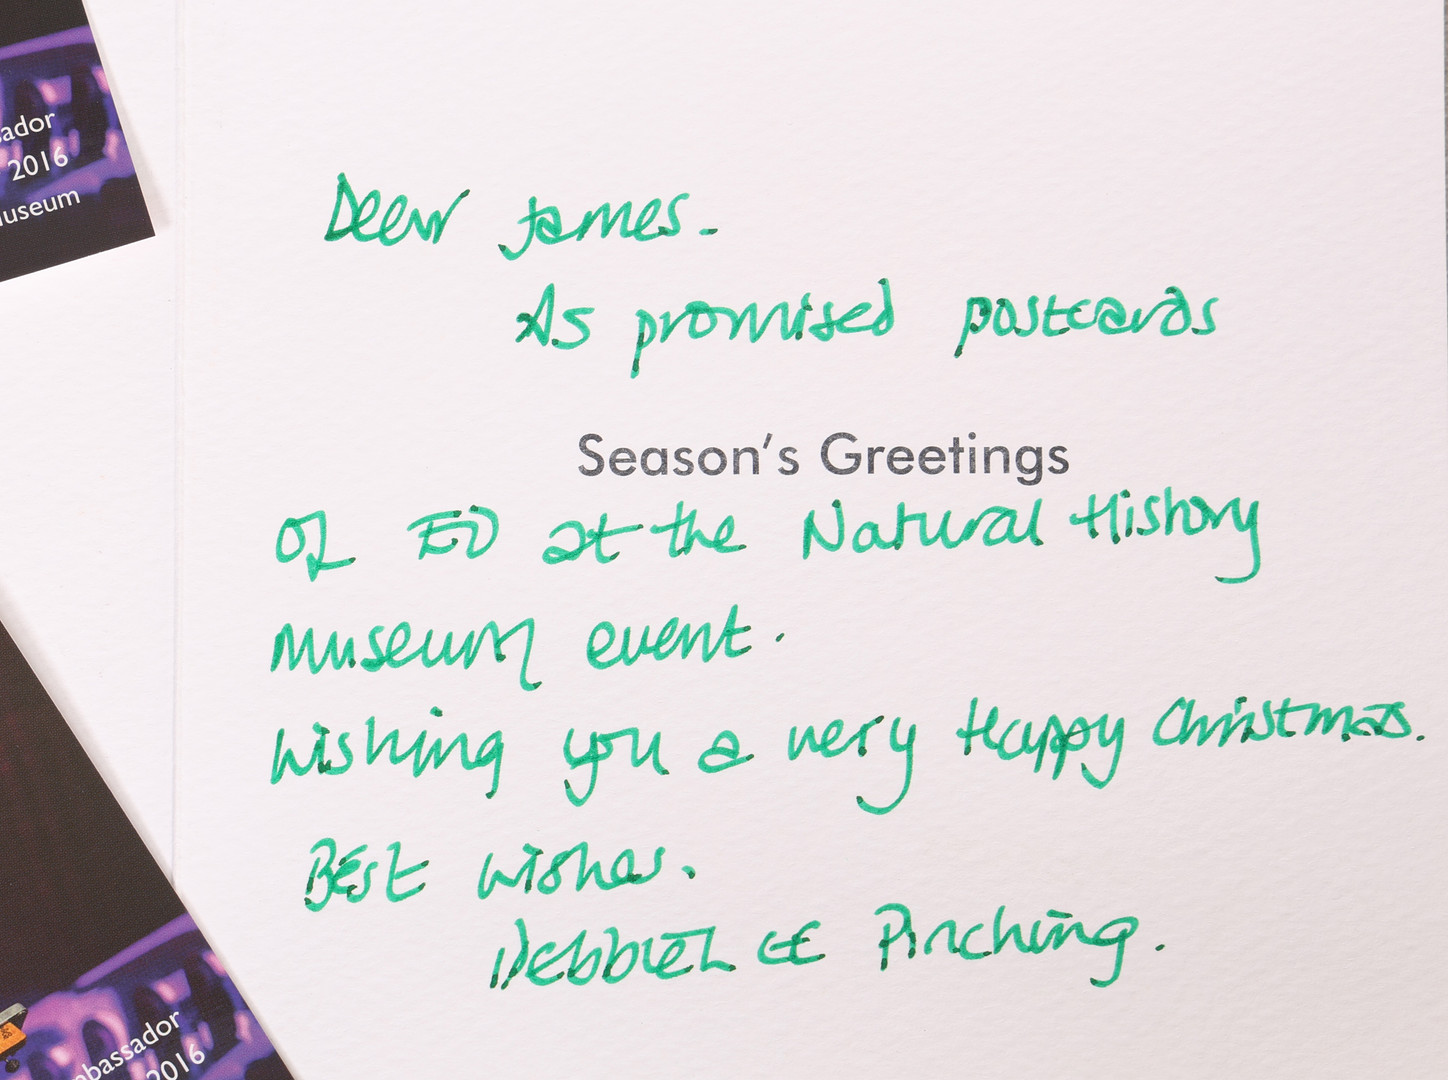 ador
2016
useum
Dear James.
As promised postcards
Season's Greetings
of ED at the Natural History
Museum event.
Wishing you a very Happy Christmas.
Best wishes.
Pinching.
bassador
2016